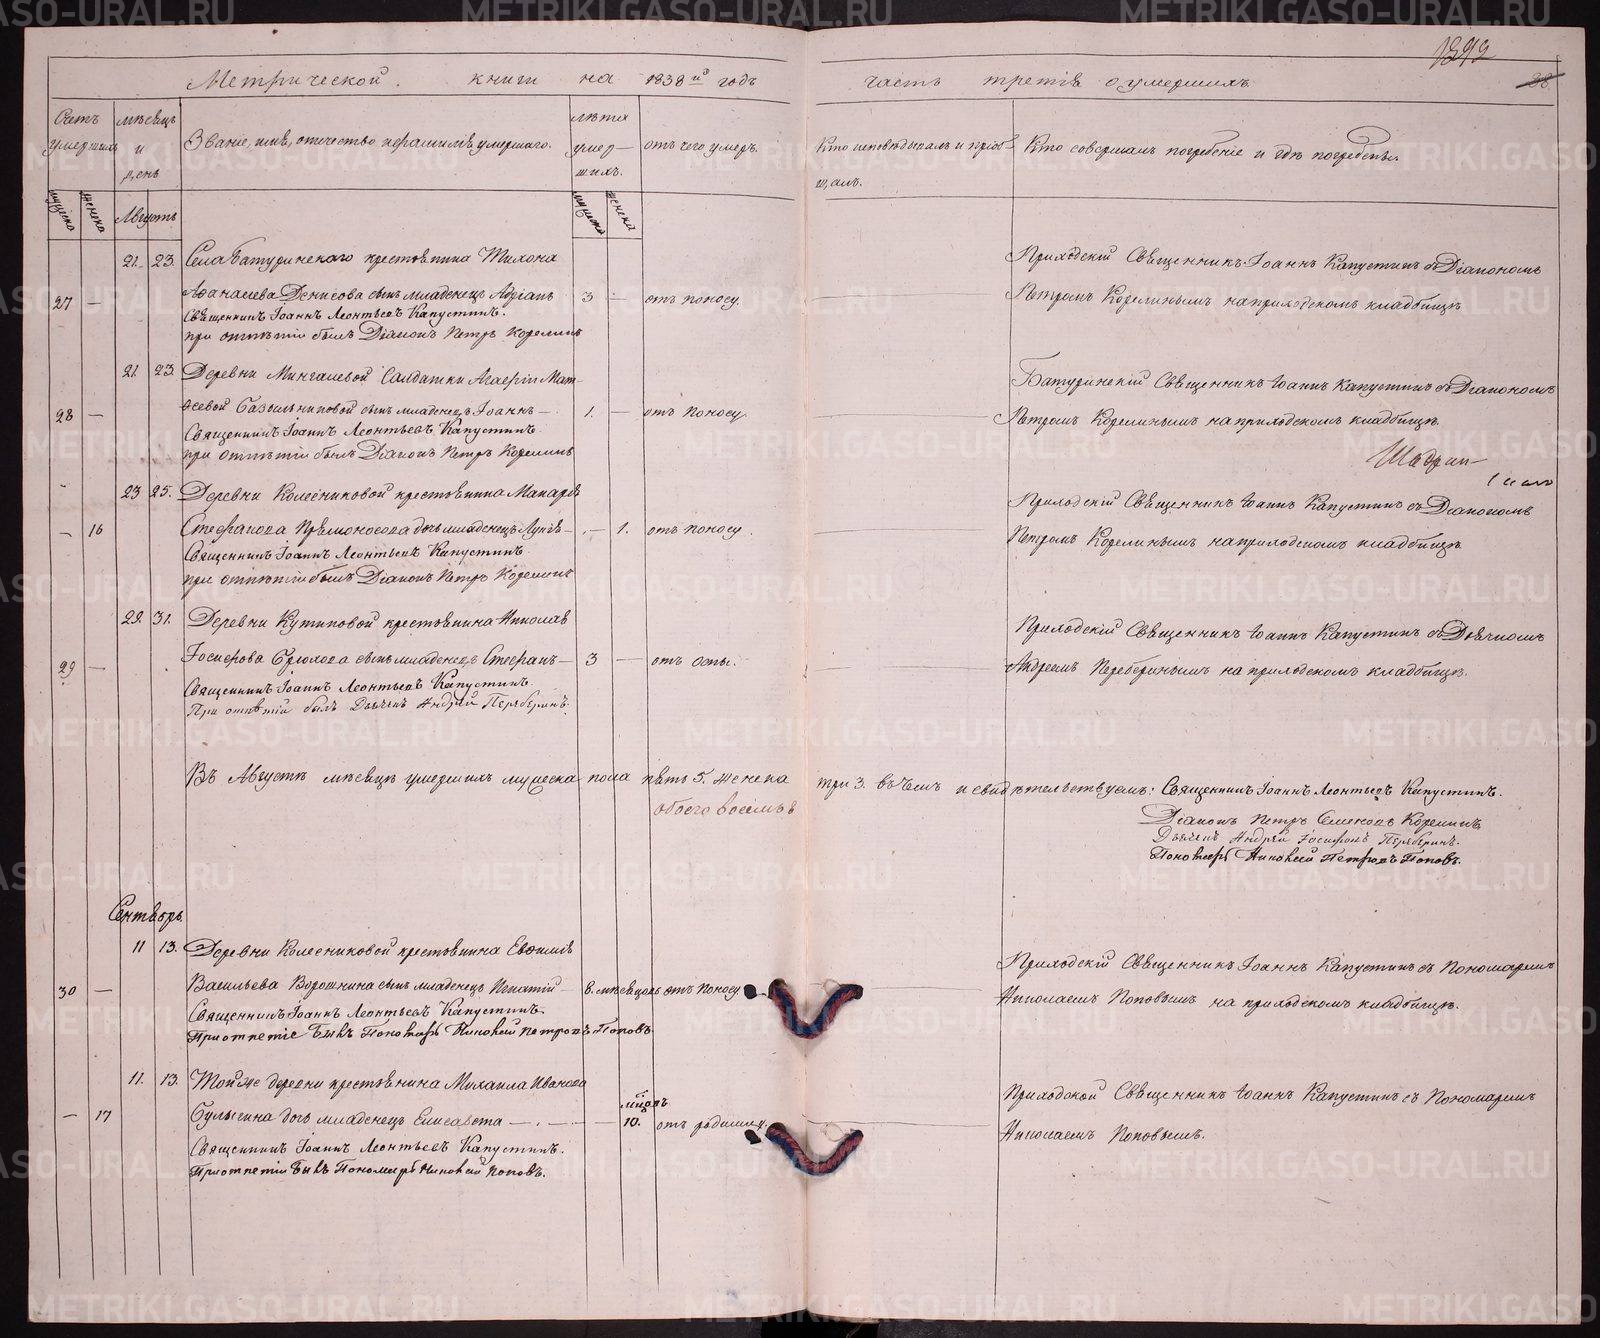 1292
88
Метрической книги на 1838й годъ часть третія о умершихъ
Счетъ умершихъ
мѣсяцъ и день
Званіе, имя, отчество и фамилія умершаго.
лѣта умершихъ.
отъ чего умеръ.
Кто исповѣдывалъ и пріобщалъ.
Кто совершалъ погребеніе и гдѣ погребены.
мужеска
женска
Августъ
мужеска
женска
21. 23. Села Батуринскаго крестьянина Тихона
27 — Афанасьева Денисова сынъ младенецъ Адріанъ 3 — отъ поносу.
Священникъ Іоаннъ Леонтьевъ Капустинъ.
при отпѣтіи былъ Діаконъ Петръ Корелинъ
Приходскій Священникъ Іоаннъ Капустинъ съ Діакономъ
Петромъ Корелинымъ на приходскомъ кладбищѣ
21. 23. Деревни Мингалевой Солдатки Агафіи Мат-
28 — ѳеевой сынъ младенецъ Іоаннъ — 1. — отъ поносу.
Священникъ Іоаннъ Леонтьевъ Капустинъ.
при отпѣтіи былъ Діаконъ Петръ Корелинъ
Батуринскій Священникъ Іоаннъ Капустинъ съ Діакономъ
Петромъ Корелинымъ на приходскомъ кладбищѣ.
23 25. Деревни Колесниковой крестьянина Макарія
— 16 Стефанова Прямоносова дочь младенецъ — — 1. отъ поносу.
Священникъ Іоаннъ Леонтьевъ Капустинъ
при отпѣтіи былъ Діаконъ Петръ Корелинъ
Приходскій Священникъ Іоаннъ Капустинъ съ Діакономъ
Петромъ Корелинымъ на приходскомъ кладбищѣ.
29. 31. Деревни крестьянина Николая
29 — Іосифова сынъ младенецъ Стефанъ — 3 — отъ оспы.
Священникъ Іоаннъ Леонтьевъ Капустинъ.
При отпѣтіи былъ Дьячекъ Андрей Перяберинъ.
Приходскій Священникъ Іоаннъ Капустинъ съ Дьячкомъ
Андреемъ Переберинымъ на приходскомъ кладбищѣ.
Въ Августѣ мѣсяцѣ умершихъ мужеска пола пять 5. женска три 3. въ чемъ и свидѣтельствуемъ: Священникъ Іоаннъ Леонтьевъ Капустинъ.
обоего восемь 8
Діаконъ Петръ Семеновъ Корелинъ
Дьячекъ Андрей Іосифовъ Перяберинъ.
Пономарь Николай Петровъ Поповъ.
Сентябрь
11 13. Деревни Колесниковой крестьянина Евѳимія
30 — Васильева Ворошнина сынъ младенецъ Игнатій — 6. мѣсяцовъ отъ поносу
Священникъ Іоаннъ Леонтьевъ Капустинъ.
При отпетіе былъ Пономарь Николай Петровъ Поповъ
Приходскій Священникъ Іоаннъ Капустинъ съ Пономаремъ
Николаемъ Поповымъ на приходскомъ кладбищѣ.
11. 13. Той же деревни крестьянина Михаила Иванова
— 17 Булыгина дочь младенецъ Елисавета — — 10. мцовъ отъ родимцу.
Священникъ Іоаннъ Леонтьевъ Капустинъ.
При отпетіи былъ Пономарь Николай Поповъ.
Приходской Священникъ Іоаннъ Капустинъ съ Пономаремъ
Николаемъ Поповымъ.
METRIKI.GASO-URAL.RU